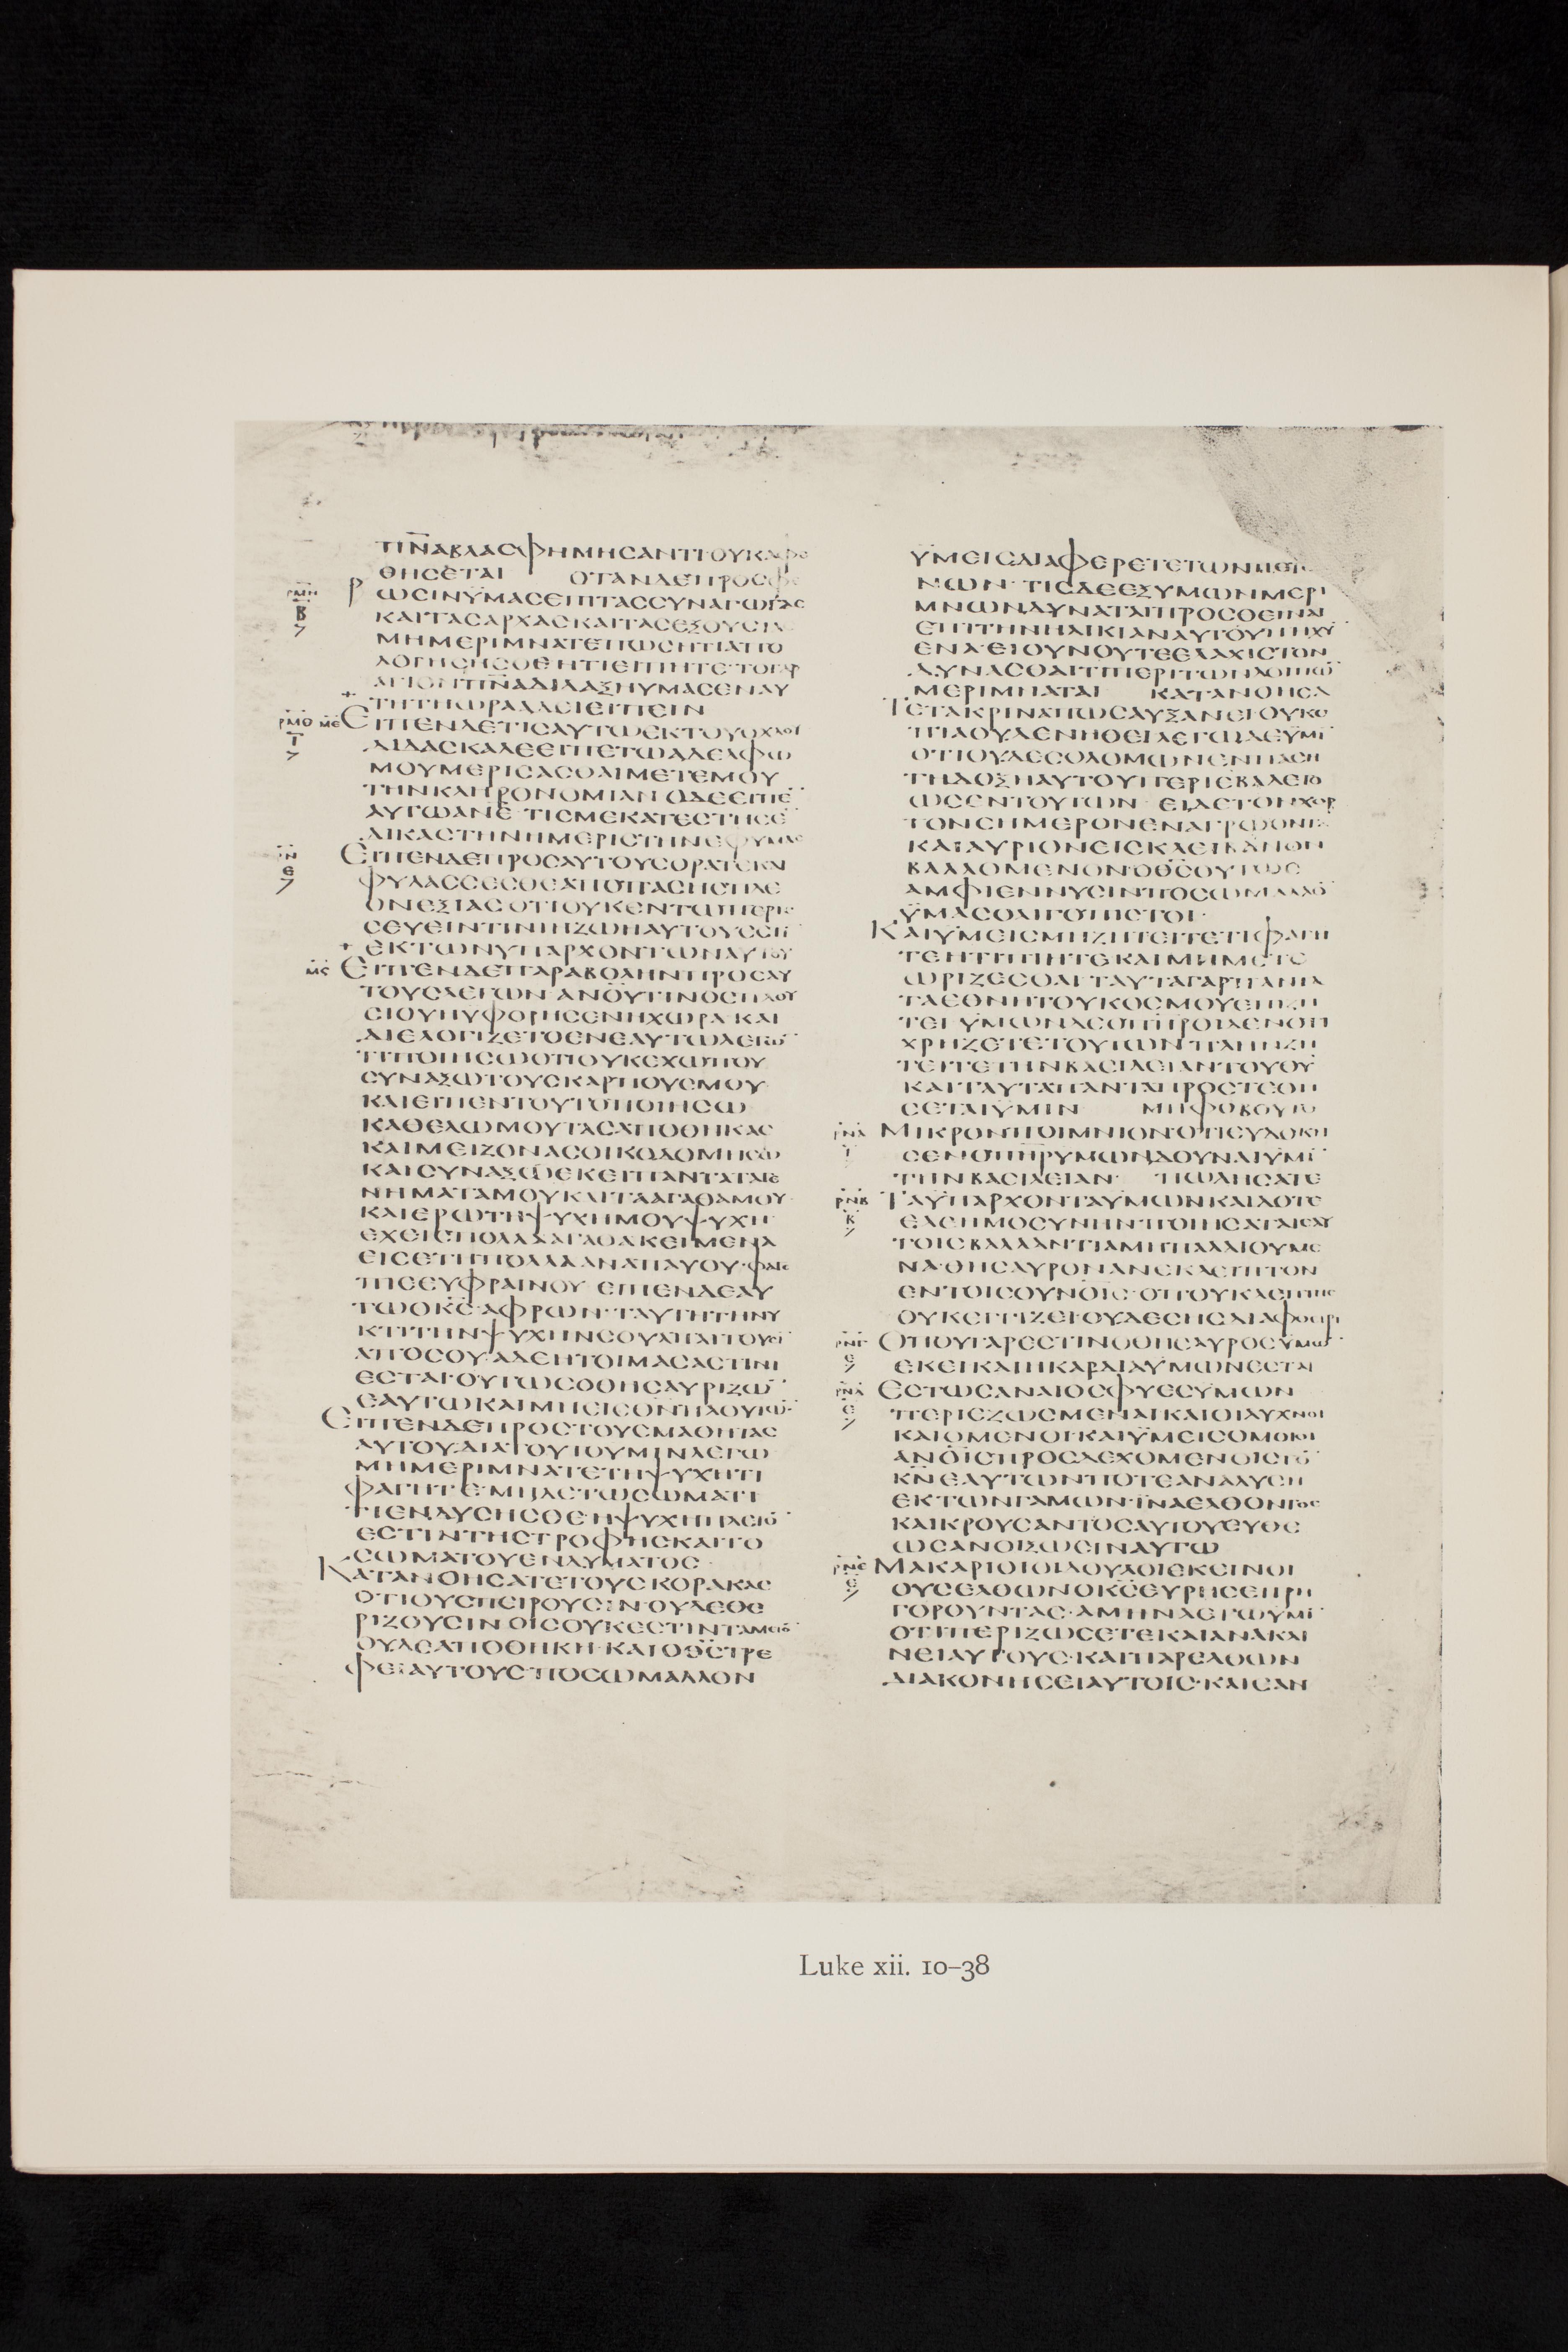 ΤΙΠΝΑΒΛΑCΦΗΜΗCΑΝΤΙΟΥΚΑΦΕ
ΘΗCΕΤΑΙ ΟΤΑΝΔΕΠΡΟCΦΕ
ΡΩCΙΝΫΜΑCΕΙΠΤΑCCΥΝΑΓΩΓΑC
ΚΑΙΤΑCΑΡΧΑCΚΑΙΤΑCΕΞΟΥCΙΑ
ΜΗΜΕΡΙΜΝΑΤΕΠΩCΗΤΙΑΠΟ
ΑΓΙΟΝΠΝΑΔΙΔΑΞΗΥΜΑCΕΝΑΥ
ΤΗΤΗΩΡΑΑΔΕΙΕΙΠΕΙΝ
ΡΜΘ ΜΕ ΕΙΠΕΝΔΕΤΙCΑΥΤΩΕΚΤΟΥΟΧΛΟΥ
ΔΙΔΑCΚΑΛΕΕΙΠΕΤΩΑΔΕΛΦΩ
ΜΟΥΜΕΡΙCΑCΘΑΙΜΕΤΕΜΟΥ
ΤΗΝΚΛΗΡΟΝΟΜΙΑΝ ΟΔΕΕΙΠΕ
ΑΥΤΩΑΝΕ ΤΙCΜΕΚΑΤΕCΤΗCΕ
ΔΙΚΑCΤΗΝΗΜΕΡΙCΤΗΝΕΦΥΜΑC
ΕΙΠΕΝΔΕΠΡΟCΑΥΤΟΥCΟΡΑΤΕΚΑΙ
ΦΥΛΑCCΕCΘΕΑΠΟΠΑCΗCΠΛΕ
ΟΝΕΞΙΑC ΟΤΙΟΥΚΕΝΤΩΠΕΡΙC
CΕΥΕΙΝΤΙΝΙΗΖΩΗΑΥΤΟΥΕCΤΙ
ΕΚΤΩΝΥΠΑΡΧΟΝΤΩΝΑΥΤΟΥ
ΜϚ ΕΙΠΕΝΔΕΠΑΡΑΒΟΛΗΝΠΡΟCΑΥ
ΤΟΥCΛΕΓΩΝ ΑΝΟΥΤΙΝΟCΠΛΟΥ
CΙΟΥΗΥΦΟΡΗCΕΝΗΧΩΡΑ ΚΑΙ
ΔΙΕΛΟΓΙΖΕΤΟΕΝΕΑΥΤΩΛΕΓΩ
ΤΙΠΟΙΗCΩΟΤΙΟΥΚΕΧΩΠΟΥ
CΥΝΑΞΩΤΟΥCΚΑΡΠΟΥCΜΟΥ
ΚΑΙΕΙΠΕΝΤΟΥΤΟΠΟΙΗCΩ
ΚΑΘΕΛΩΜΟΥΤΑCΑΠΟΘΗΚΑC
ΚΑΙΜΕΙΖΟΝΑCΟΙΚΟΔΟΜΗCΩ
ΚΑΙCΥΝΑΞΩΕΚΕΙΠΑΝΤΑΤΑΓΕ
ΝΗΜΑΤΑΜΟΥΚΑΙΤΑΑΓΑΘΑΜΟΥ
ΚΑΙΕΡΩΤΗΨΥΧΗΜΟΥΨΥΧΗ
ΕΧΕΙCΠΟΛΛΑΑΓΑΘΑΚΕΙΜΕΝΑ
ΕΙCΕΤΗΠΟΛΛΑΑΝΑΠΑΥΟΥ·ΦΑΓΕ
ΠΙΕΕΥΦΡΑΙΝΟΥ ΕΙΠΕΝΔΕΑΥ
ΤΩΟΚC ΑΦΡΩΝ·ΤΑΥΤΗΤΗΝΥ
ΚΤΙΤΗΝΨΥΧΗΝCΟΥΑΠΑΙΤΟΥCΙ
ΑΠΟCΟΥ·ΑΔΕΗΤΟΙΜΑCΑCΤΙΝΙ
ΕCΤΑΙ·ΟΥΤΩCΟΘΗCΑΥΡΙΖΩ
ΕΑΥΤΩΚΑΙΜΗΕΙCΘΝΠΛΟΥΤΩ
ΕΙΠΕΝΔΕΠΡΟCΤΟΥCΜΑΘΗΤΑC
ΑΥΤΟΥ·ΔΙΑΤΟΥΤΟΥΜΙΝΛΕΓΩ
ΜΗΜΕΡΙΜΝΑΤΕΤΗΨΥΧΗΤΙ
ΦΑΓΗΤΕ·ΜΗΔΕΤΩCΩΜΑΤΙ
ΤΙΕΝΔΥCΗCΘΕ·ΗΨΥΧΗΠΛΕΙΟ
ΕCΤΙΝΤΗCΤΡΟΦΗCΚΑΙΤΟ
CΩΜΑΤΟΥΕΝΔΥΜΑΤΟC
ΚΑΤΑΝΟΗCΑΤΕΤΟΥCΚΟΡΑΚΑC
ΟΤΙΟΥCΠΕΙΡΟΥCΙΝ·ΟΥΔΕΘΕ
ΡΙΖΟΥCΙΝ ΟΙCΟΥΚΕCΤΙΝΤΑΜΕΙΟ
ΟΥΔΕΑΠΟΘΗΚΗ·ΚΑΙΟΘCΤΡΕ
ΦΕΙΑΥΤΟΥC·ΠΟCΩΜΑΛΛΟΝ
ΫΜΕΙCΔΙΑΦΕΡΕΤΕΤΩΝΠΕΤΙ
ΝΩΝ· ΤΙCΔΕΕΞΥΜΩΝΜΕΡΙ
ΜΝΩΝΔΥΝΑΤΑΙΠΡΟCΘΕΙΝΑΙ
ΕΠΙΤΗΝΗΛΙΚΙΑΝΑΥΤΟΥΠΗΧΥ
ΕΝΑ·ΕΙΟΥΝΟΥΤΕΕΛΑΧΙCΤΟΝ
ΔΥΝΑCΘΑΙΤΙΠΕΡΙΤΩΝΛΟΙΠΩ
ΜΕΡΙΜΝΑΤΑΙ ΚΑΤΑΝΟΗCΑ
ΤΕΤΑΚΡΙΝΑΠΩCΑΥΞΑΝΕΙ·ΟΥΚΟ
ΠΙΑΟΥΔΕΝΗΘΕΙΛΕΓΩΔΕΫΜΙ
ΟΤΙΟΥΔΕCΟΛΟΜΩΝΕΝΠΑCΗ
ΤΗΔΟΞΗΑΥΤΟΥΠΕΡΙΕΒΑΛΕΤΟ
ΩCΕΝΤΟΥΤΩΝ ΕΙΔΕΤΟΝΧΟΡ
ΤΟΝCΗΜΕΡΟΝΕΝΑΓΡΩΟΝΤΑ
ΚΑΙΑΥΡΙΟΝΕΙCΚΛΕΙΒΑΝΟΝ
ΒΑΛΛΟΜΕΝΟΝ·ΟΘCΟΥΤΩC
ΑΜΦΙΕΝΝΥCΙΝΠΟCΩΜΑΛΛΟ
ΫΜΑCΟΛΙΓΟΠΙCΤΟΙ·
ΚΑΙΥΜΕΙCΜΗΖΗΤΕΙΤΕΤΙΦΑΓΗ
ΤΕΗΤΙΠΙΗΤΕΚΑΙΜΗΜΕΤΕ
ΩΡΙΖΕCΘΑΙ ΤΑΥΤΑΓΑΡΠΑΝΤΑ
ΤΑΕΘΝΗΤΟΥΚΟCΜΟΥΕΠΙΖΗ
ΤΕΙ ΥΜΩΝΔΕΟΠΗΡΟΙΔΕΝΟΤΙ
ΧΡΗΖΕΤΕΤΟΥΤΩΝ·ΠΛΗΝΖΗ
ΤΕΙΤΕΤΗΝΒΑCΙΛΕΙΑΝΤΟΥΘΥ
ΚΑΙΤΑΥΤΑΠΑΝΤΑΠΡΟCΤΕΘΗ
CΕΤΑΙΥΜΙΝ ΜΗΦΟΒΟΥΤΟ
ΡΝΑ ΜΙΚΡΟΝΠΟΙΜΝΙΟΝ·ΟΤΙΕΥΔΟΚΗ
CΕΝΟΠΗΡΥΜΩΝΔΟΥΝΑΙΥΜΙ
ΤΗΝΒΑCΙΛΕΙΑΝ· ΠΩΛΗCΑΤΕ
ΡΝΒ ΤΑΫΠΑΡΧΟΝΤΑΥΜΩΝΚΑΙΔΟΤΕ
ΕΛΕΗΜΟCΥΝΗΝ·ΠΟΙΗCΑΤΑΙΕΑΥ
ΤΟΙCΒΑΛΛΑΝΤΙΑΜΗΠΑΛΑΙΟΥΜΕ
ΝΑ·ΘΗCΑΥΡΟΝΑΝΕΚΛΕΙΠΤΟΝ
ΕΝΤΟΙCΟΥΝΟΙC·ΟΠΟΥΚΛΕΠΤΗC
ΟΥΚΕΓΓΙΖΕΙ·ΟΥΔΕCΗCΔΙΑΦΘΕΙΡΙ
ΡΝΓ ΟΠΟΥΓΑΡΕCΤΙΝΟΘΗCΑΥΡΟCΫΜΩ
ΕΚΕΙΚΑΙΗΚΑΡΔΙΑΫΜΩΝΕCΤΑΙ
ΡΝΔ ΕCΤΩCΑΝΑΙΟCΦΥΕCΥΜΩΝ
ΠΕΡΙΕΖΩCΜΕΝΑΙΚΑΙΟΙΛΥΧΝΟΙ
ΚΑΙΟΜΕΝΟΙ·ΚΑΙΫΜΕΙCΟΜΟΙΟΙ
ΑΝΟΙCΠΡΟCΔΕΧΟΜΕΝΟΙCΤΟ
ΚΝΕΑΥΤΩΝΠΟΤΕΑΝΑΛΥCΗ
ΕΚΤΩΝΓΑΜΩΝ·ΪΝΑΕΛΘΟΝΤΟC
ΚΑΙΚΡΟΥCΑΝΤΟCΑΥΤΟΥΕΥΘΕ
ΩCΑΝΟΙΞΩCΙΝΑΥΤΩ
ΡΝΕ ΜΑΚΑΡΙΟΙΟΙΔΟΥΛΟΙΕΚΕΙΝΟΙ
ΟΥCΕΛΘΩΝΟΚCΕΥΡΗCΕΙΓΡΗ
ΓΟΡΟΥΝΤΑC·ΑΜΗΝΛΕΓΩΥΜΙ
ΟΤΙΠΕΡΙΖΩCΕΤΕΚΑΙΑΝΑΚΛΙ
ΝΕΙΑΥΤΟΥC·ΚΑΙΠΑΡΕΛΘΩΝ
ΔΙΑΚΟΝΗCΕΙΑΥΤΟΙC·ΚΑΙΕΑΝ
Luke xii. 10–38